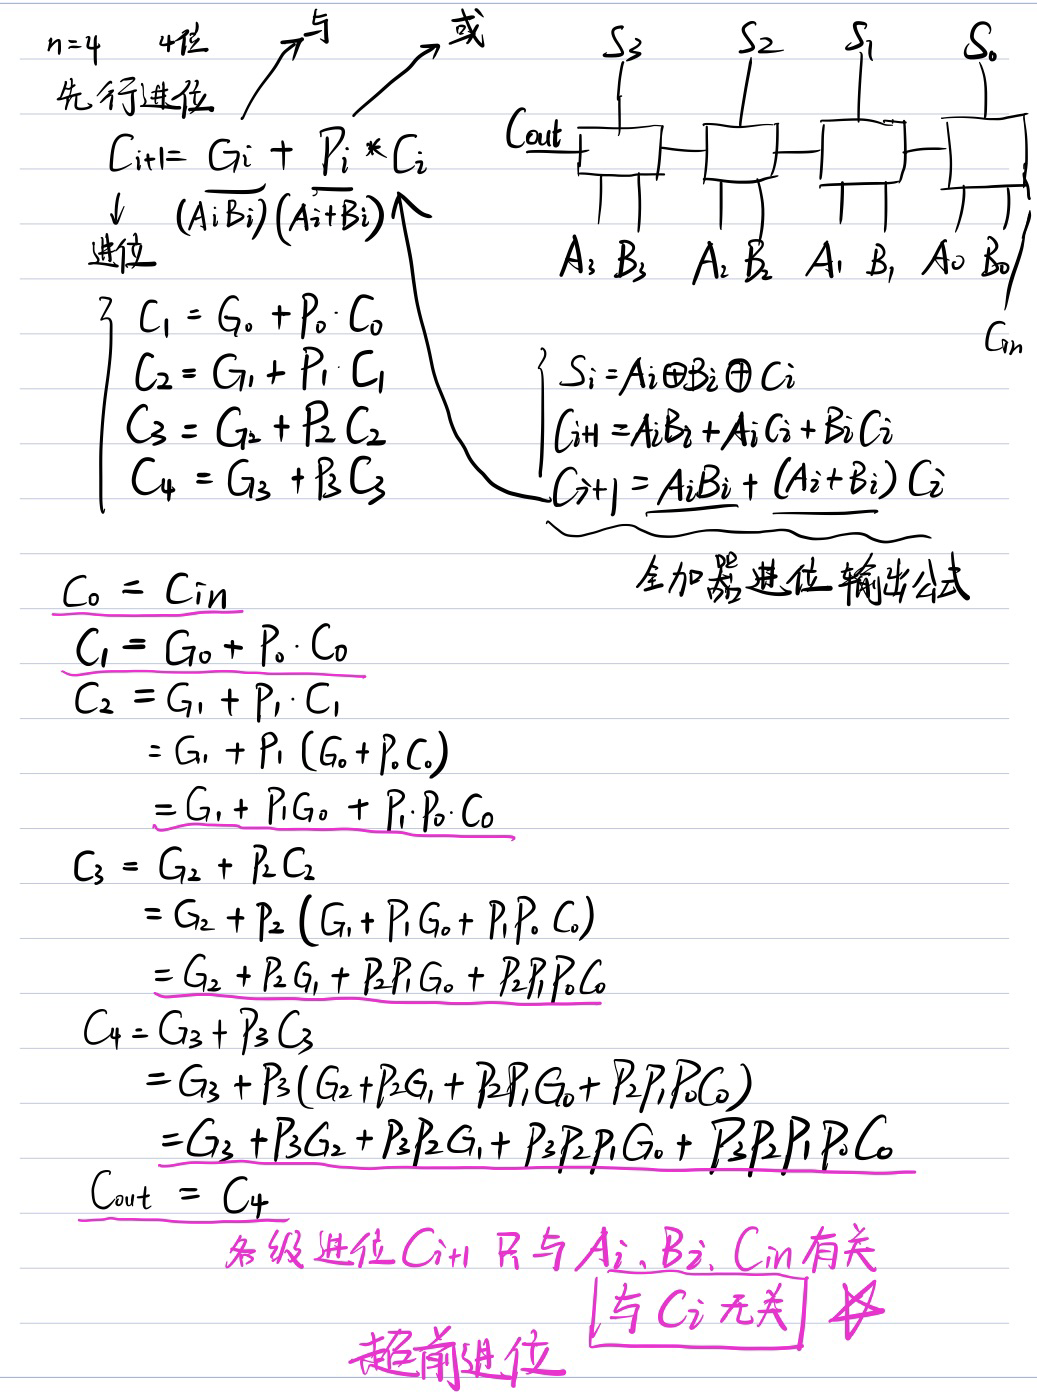 n=4 4位 与 或
先行进位
C_{i+1} = G_i + P_i * C_i
(A_iB_i) (A_i+B_i)
进位
S_3 S_2 S_1 S_0
Cout
A_3 B_3 A_2 B_2 A_1 B_1 A_0 B_0
C_in
C_1 = G_0 + P_0 · C_0
C_2 = G_1 + P_1 · C_1
C_3 = G_2 + P_2 C_2
C_4 = G_3 + P_3 C_3
S_i = A_i ⊕ B_i ⊕ C_i
C_{i+1} = A_iB_i + A_iC_i + B_iC_i
C_{i+1} = A_iB_i + (A_i+B_i) C_i
全加器进位输出公式
C_0 = C_in
C_1 = G_0 + P_0 · C_0
C_2 = G_1 + P_1 · C_1
= G_1 + P_1 (G_0 + P_0 C_0)
= G_1 + P_1G_0 + P_1 · P_0 · C_0
C_3 = G_2 + P_2 C_2
= G_2 + P_2 (G_1 + P_1G_0 + P_1P_0 C_0)
= G_2 + P_2G_1 + P_2P_1G_0 + P_2P_1P_0C_0
C_4 = G_3 + P_3 C_3
= G_3 + P_3 (G_2 + P_2G_1 + P_2P_1G_0 + P_2P_1P_0C_0)
= G_3 + P_3G_2 + P_3P_2G_1 + P_3P_2P_1G_0 + P_3P_2P_1P_0C_0
Cout = C_4
各级进位C_{i+1} 只与A_i、B_i、C_in有关
与C_i无关
超前进位